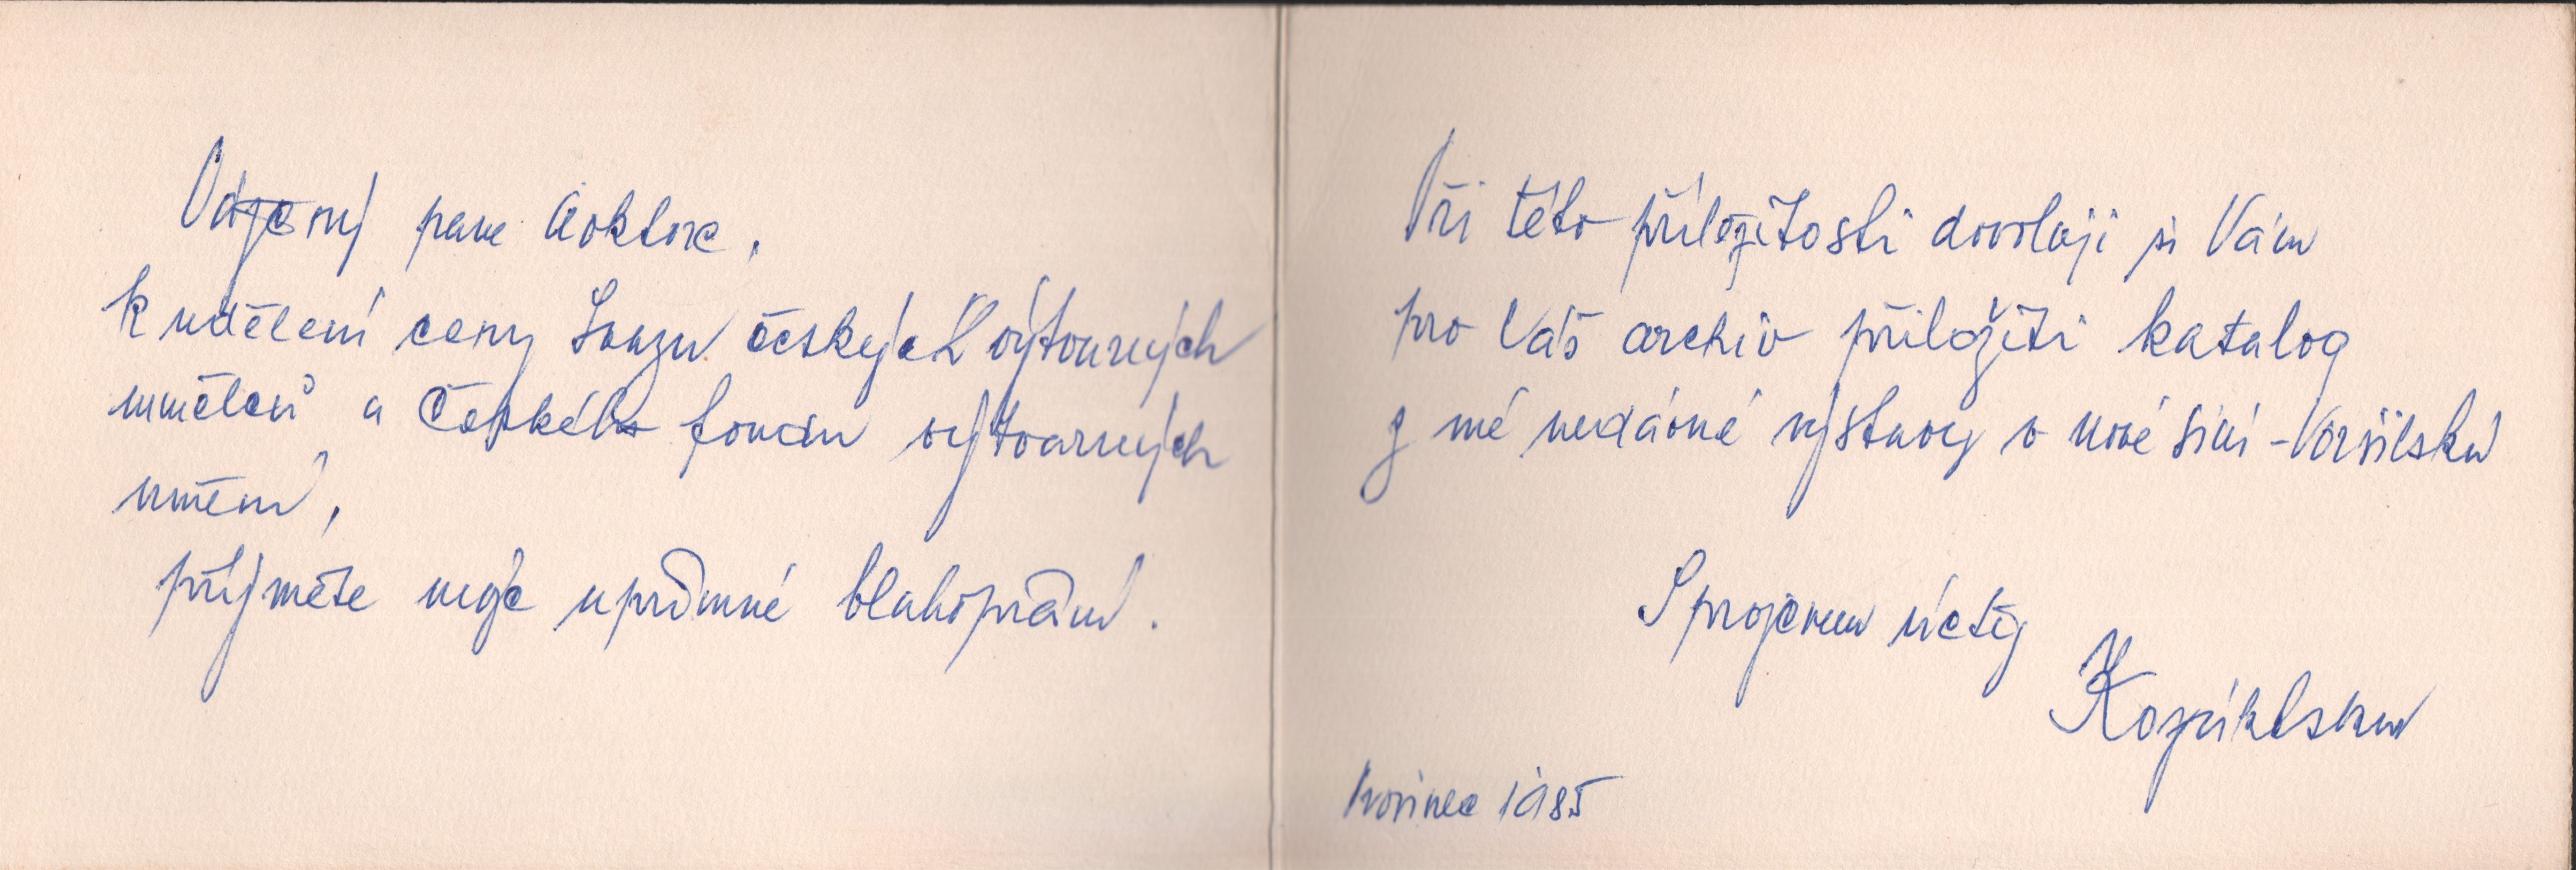 Vážený pane doktore,
k udělení ceny Svazu českých výtvarných
umělců a Českého fondu výtvarných
umění,
přijměte moje upřímné blahopřání.
Při této příležitosti dovoluji si Vám
pro Váš archiv přiložiti katalog
z mé nedávné výstavy v nové síni - Voršilská
S projevem úcty
Prosinec 1985